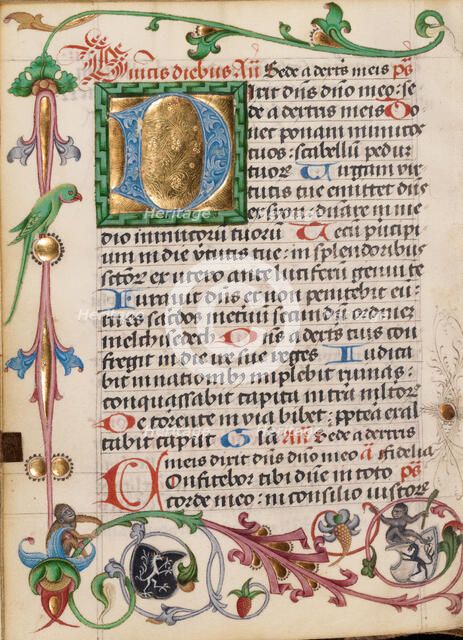 diebus Añ Sede a dextris meis ps
Dixit dñs dño meo: se
de a dextris meis Do
nec ponam inimicos
tuos: scabellũ pedũ
tuoꝝ Virgam vir
tutis tue emittet dñs
ex syon: dñare in me
dio inimicoꝝ tuoꝝ Tecũ pꝛincipi
um in die vꝛtutis tue: in splendoribus
sctõꝝ ex utero ante luciferũ genui te
Iurauit dñs et non penitebit eũ:
tu es sacdos in eternũ secundũ ordinẽ
melchisedech Dñs a dextris tuis con
fregit in die ire sue reges Iudica
bit in nationibꝰ implebit ruinas:
conquassabit capita in tra mĩtoꝝ
De torrente in via bibet: ꝓpterea exal
tabit caput Gl̃a Añ Sede a dextris
meis dixit dñs dño meo a᷈ fidelia
Confitebor tibi dñe in toto ps
corde meo: in consilio iustoꝝ
Heritage